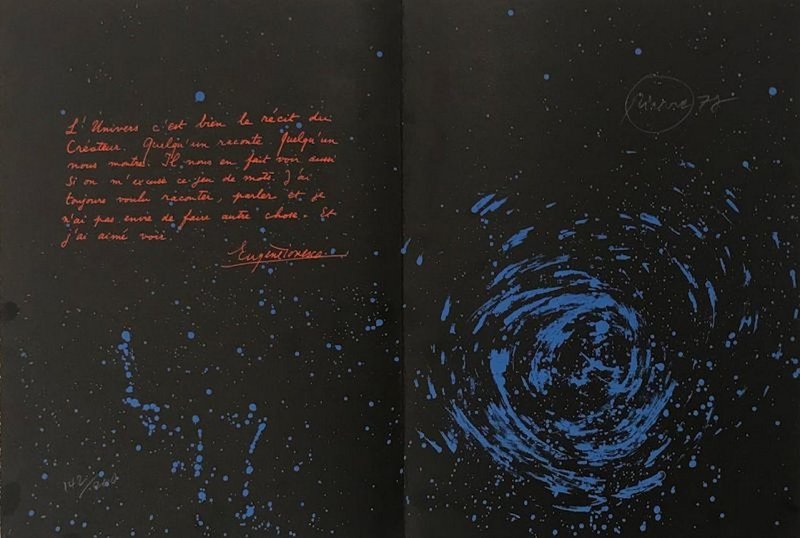 L'Univers c'est bien le récit du
Créateur. Quelqu'un raconte. Quelqu'un
nous montre. Il nous en fait voir aussi
si on m'excuse ce jeu de mots. J'ai
toujours voulu raconter, parler et je
n'ai pas envie de faire autre chose. Et
j'ai aimé voir.
Eugène Ionesco
78
142/200